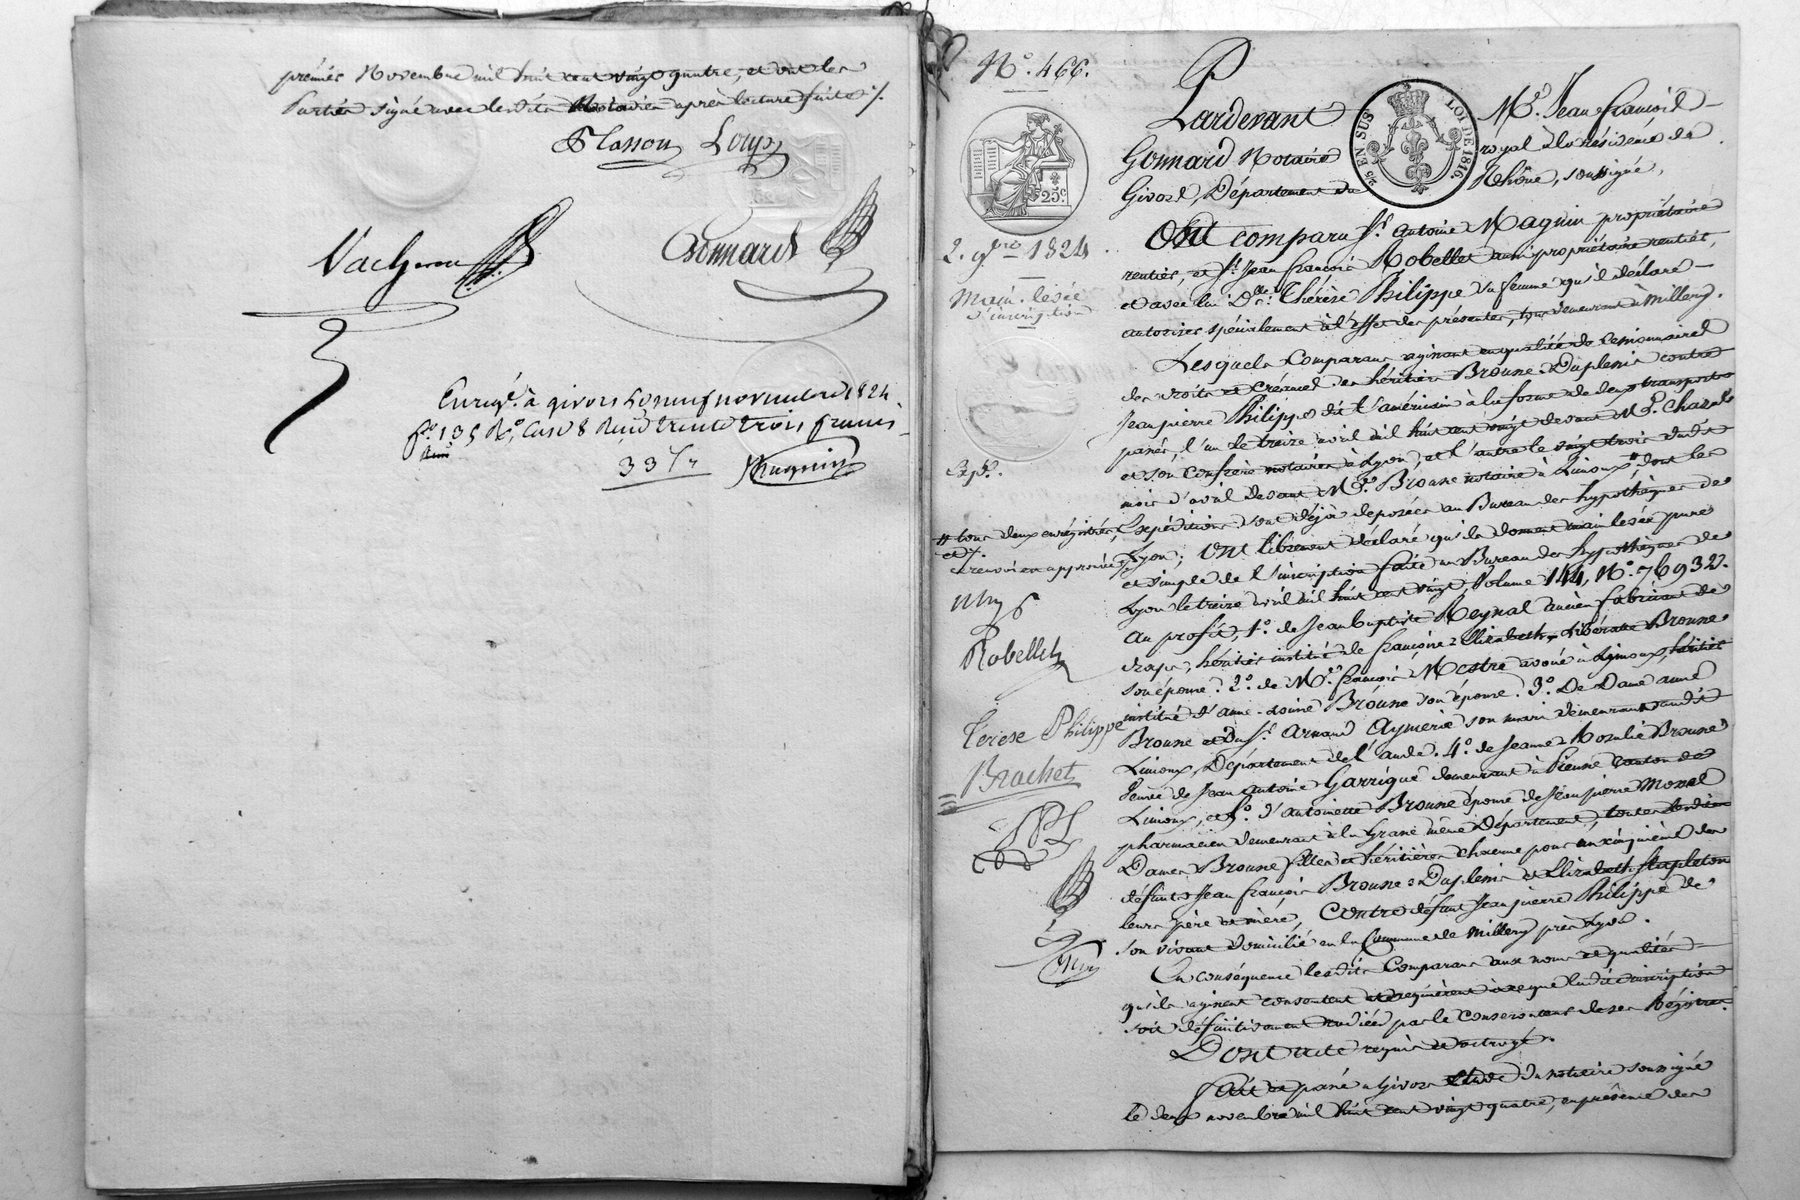 premier Novembre mil huit cent vingt quatre, et ont les
Parties signé avec lesdits Notaires après lecture faite ./.
Flasson Loup
Vacheron
Gonnard
Enregé. à givors le neuf novembre 1824
fo. 135 Ro. Case 8 Reçu trente trois francs
33 f
No. 466.
25 c.
2. 9bre 1824
Main-levée
d'inscription
Exp.
tous deux enregistrés,
et /.
renvoi approuvé
Robellet
Terese Philippe
Brachet
25 EN SUS
LOI DE 1816.
Pardevant Me. Jean françois
Gonnard Notaire royal à la résidence de
Givors, Département du Rhône, soussigné,
Ont comparu Sr. Antoine Magnin propriétaire
rentier, et Sr. Jean françois Robellet aussi propriétaire rentier,
et avec lui Dlle. Thérèse Philippe sa femme qu'il déclare
autoriser spécialement à l'effet des présentes, tous demeurant à Millery.
Lesquels Comparans agissant en qualité de Cessionnaires
des droits et créances des héritiers Broune-Duplessis contre
Jean pierre Philippe dit l'américain à la forme de deux transports
passés, l'un le treize avril mil huit cent vingt devant Me. Chazal
et son Confrère notaires à Lyon, et l'autre le vingt trois dudit
mois d'avril devant Me. Broune notaire à Limoux, dont les
Expéditions sont déjà déposées au Bureau des hypothèques de
Lyon; Ont librement déclaré qu'ils donnent main levée pure
et simple de l'inscription faite au Bureau des hypothèques de
Lyon le treize avril mil huit cent vingt, Volume 144, No. 76932.
au profit, 1o. de Jean Baptiste Reynal ancien fabricant de
draps, héritier institué de françoise-Elizabeth-Libérate Broune
son épouse. 2o. de Me. françois Mestre avoué à Limoux, héritier
institué d'anne-Louise Broune son épouse. 3o. De Dame anne
Broune et du Sr. Arnaud Aymerie son mari demeurant audit
Limoux, Département de l'aude. 4o. de Jeanne-Rosalie Broune
Veuve de Jean Antoine Garrigue demeurant à Pieusse canton de
Limoux, et 5o. d'antoinette Broune épouse de Jean pierre Monal
pharmacien demeurant à la Grasse même Département, toutes lesdites
Dames Broune filles et héritières chacune pour un cinquième des
défunts Jean françois Broune-Duplessis et Elizabeth Stapleton
leurs père et mère, Contre défunt Jean pierre Philippe de
son vivant domicilié en la Commune de Millery près Lyon.
En conséquence lesdits Comparans aux noms et qualités
qu'ils agissent consentent et requièrent à ce que ladite inscription
soit définitivement radiée par le conservateur de ses Régistres.
Dont acte requis et octroyé.
fait et passé à Givors Etude du notaire soussigné
le deux novembre mil huit cent vingt quatre, en présence des